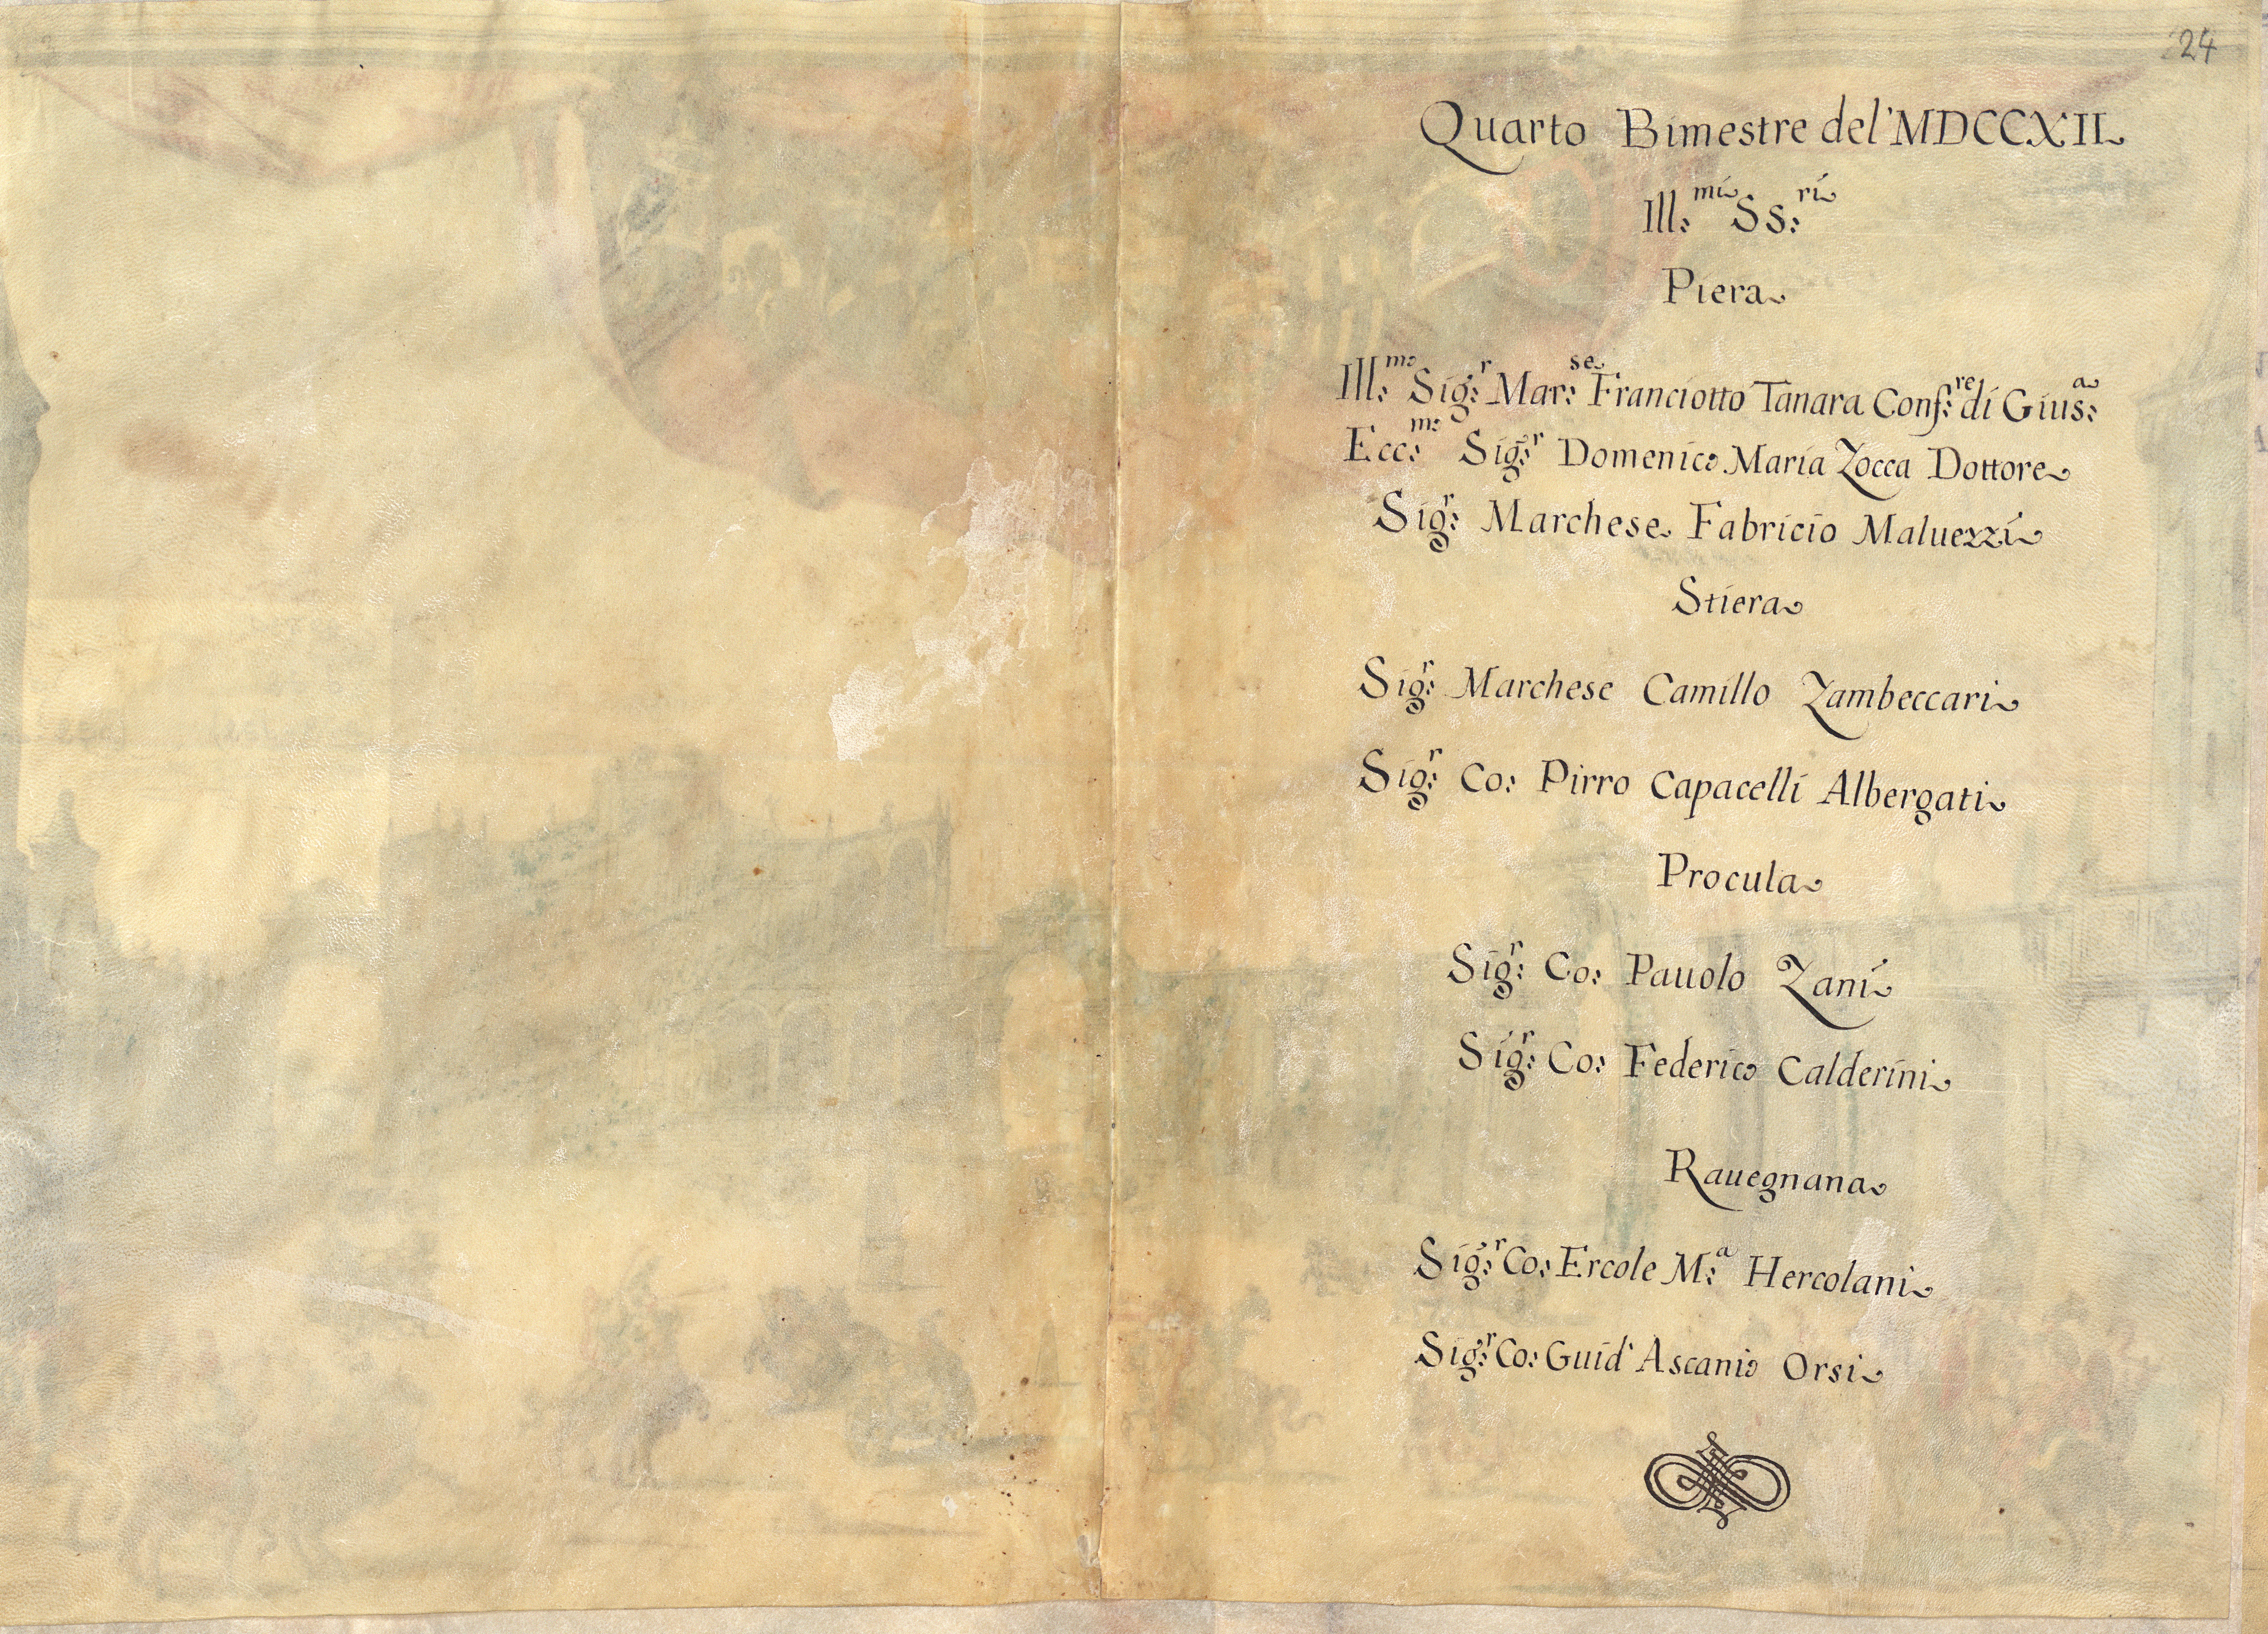 24
Quarto Bimestre del'MDCCXII
Ill:mi SS:ri
Piera
Ill:mo Sig:r Mar:se Franciotto Tanara Conf:re di Gius:a
Ecc:mo Sig:r Domenico Maria Zocca Dottore
Sig:r Marchese Fabricio Maluezzi
Stiera
Sig:r Marchese Camillo Zambeccari
Sig:r Co: Pirro Capacelli Albergati
Procula
Sig:r Co: Pauolo Zani
Sig:r Co: Federico Calderini
Rauegnana
Sig:r Co: Ercole M:a Hercolani
Sig:r Co: Guid' Ascanio Orsi